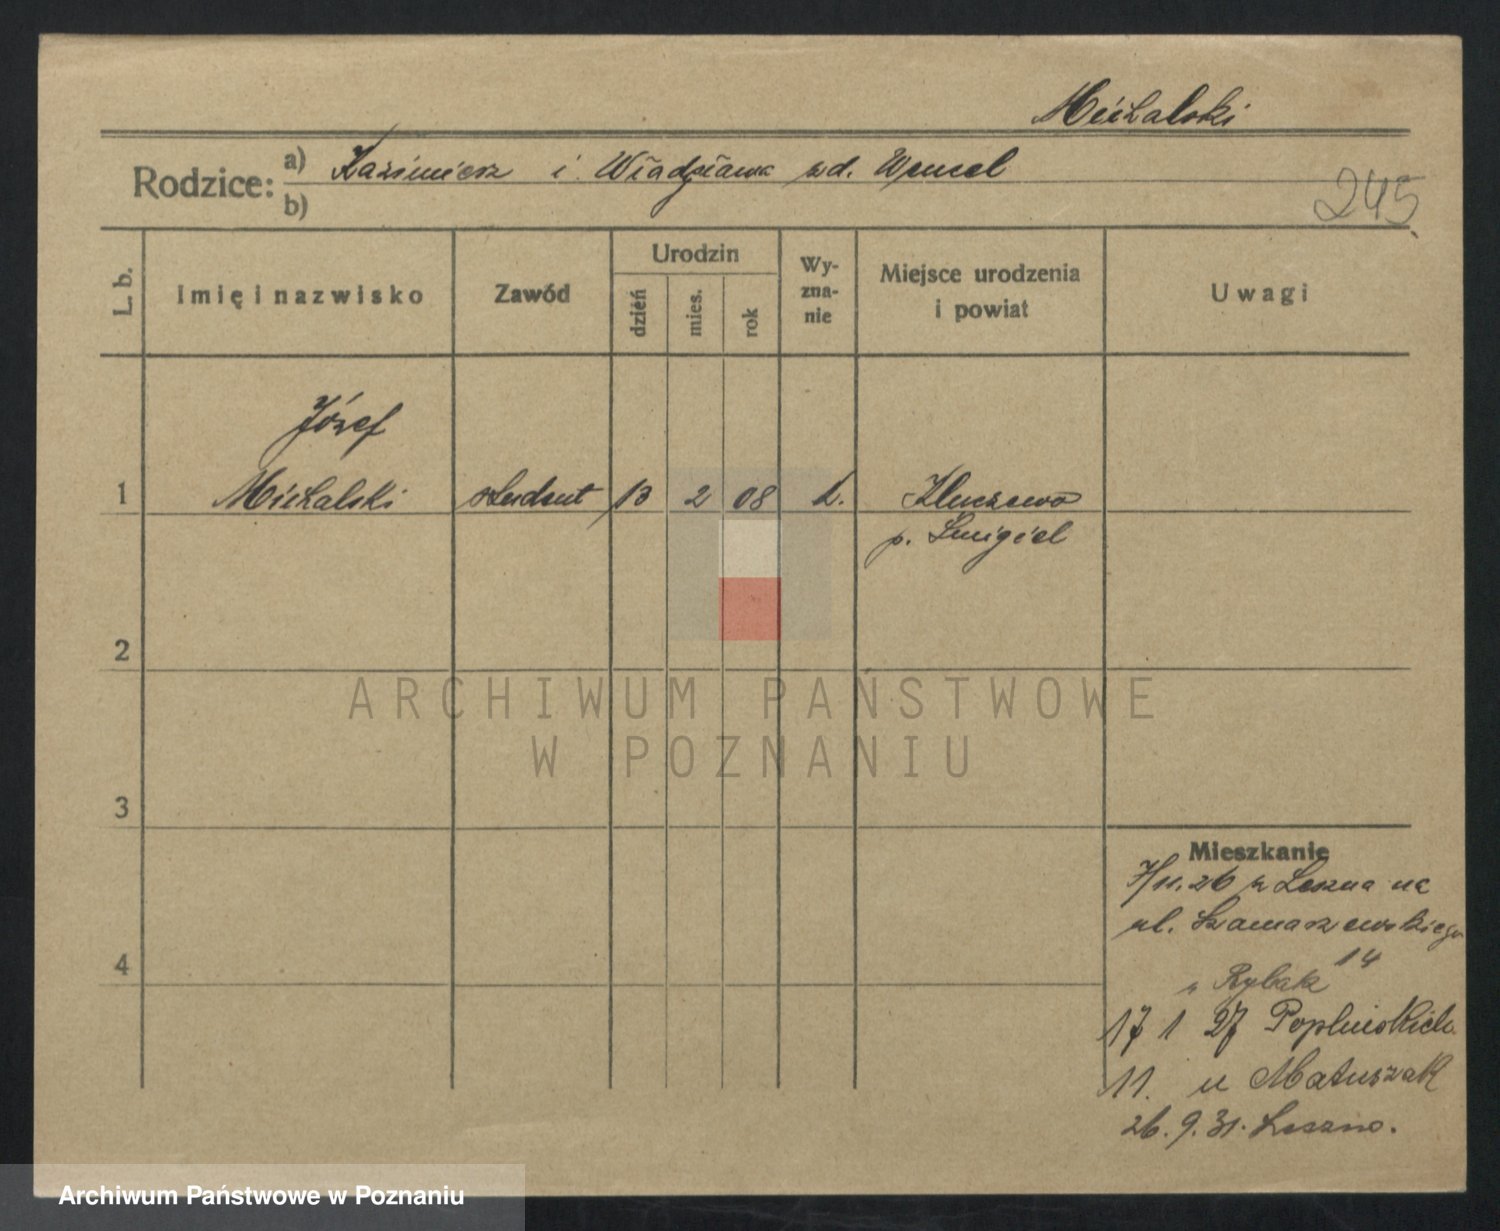 Michalski
Rodzice: a) Kazimierz i Władysława zd. Wencel
b)
245
L. b.
Imię i nazwisko
Zawód
Urodzin
dzień
mies.
rok
Wy-
zna-
nie
Miejsce urodzenia
i powiat
Uwagi
Józef
1 Michalski student 13 2 08 k. Kluczewo
p. Śmigiel
2
3
4
Mieszkanie
7/11.26 z Leszna na
ul. Szamarzewskiego
14
u Rybak
17 1 27 Poplińskich
11. u Matuszak
26.9.31. Leszno.
ARCHIWUM PAŃSTWOWE
W POZNANIU
Archiwum Państwowe w Poznaniu